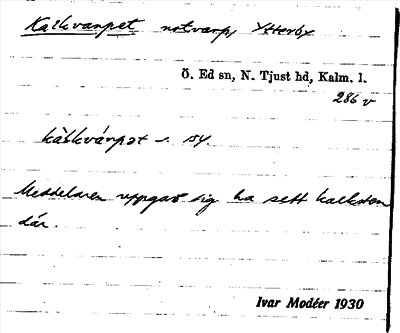 Kalkvarpet notvarp, Ytterby
Ö. Ed sn, N. Tjust hd, Kalm. l.
286 v
kàlkvárpət
Meddelaren uppgav sig ha sett kalksten
där.
Ivar Modéer 1930